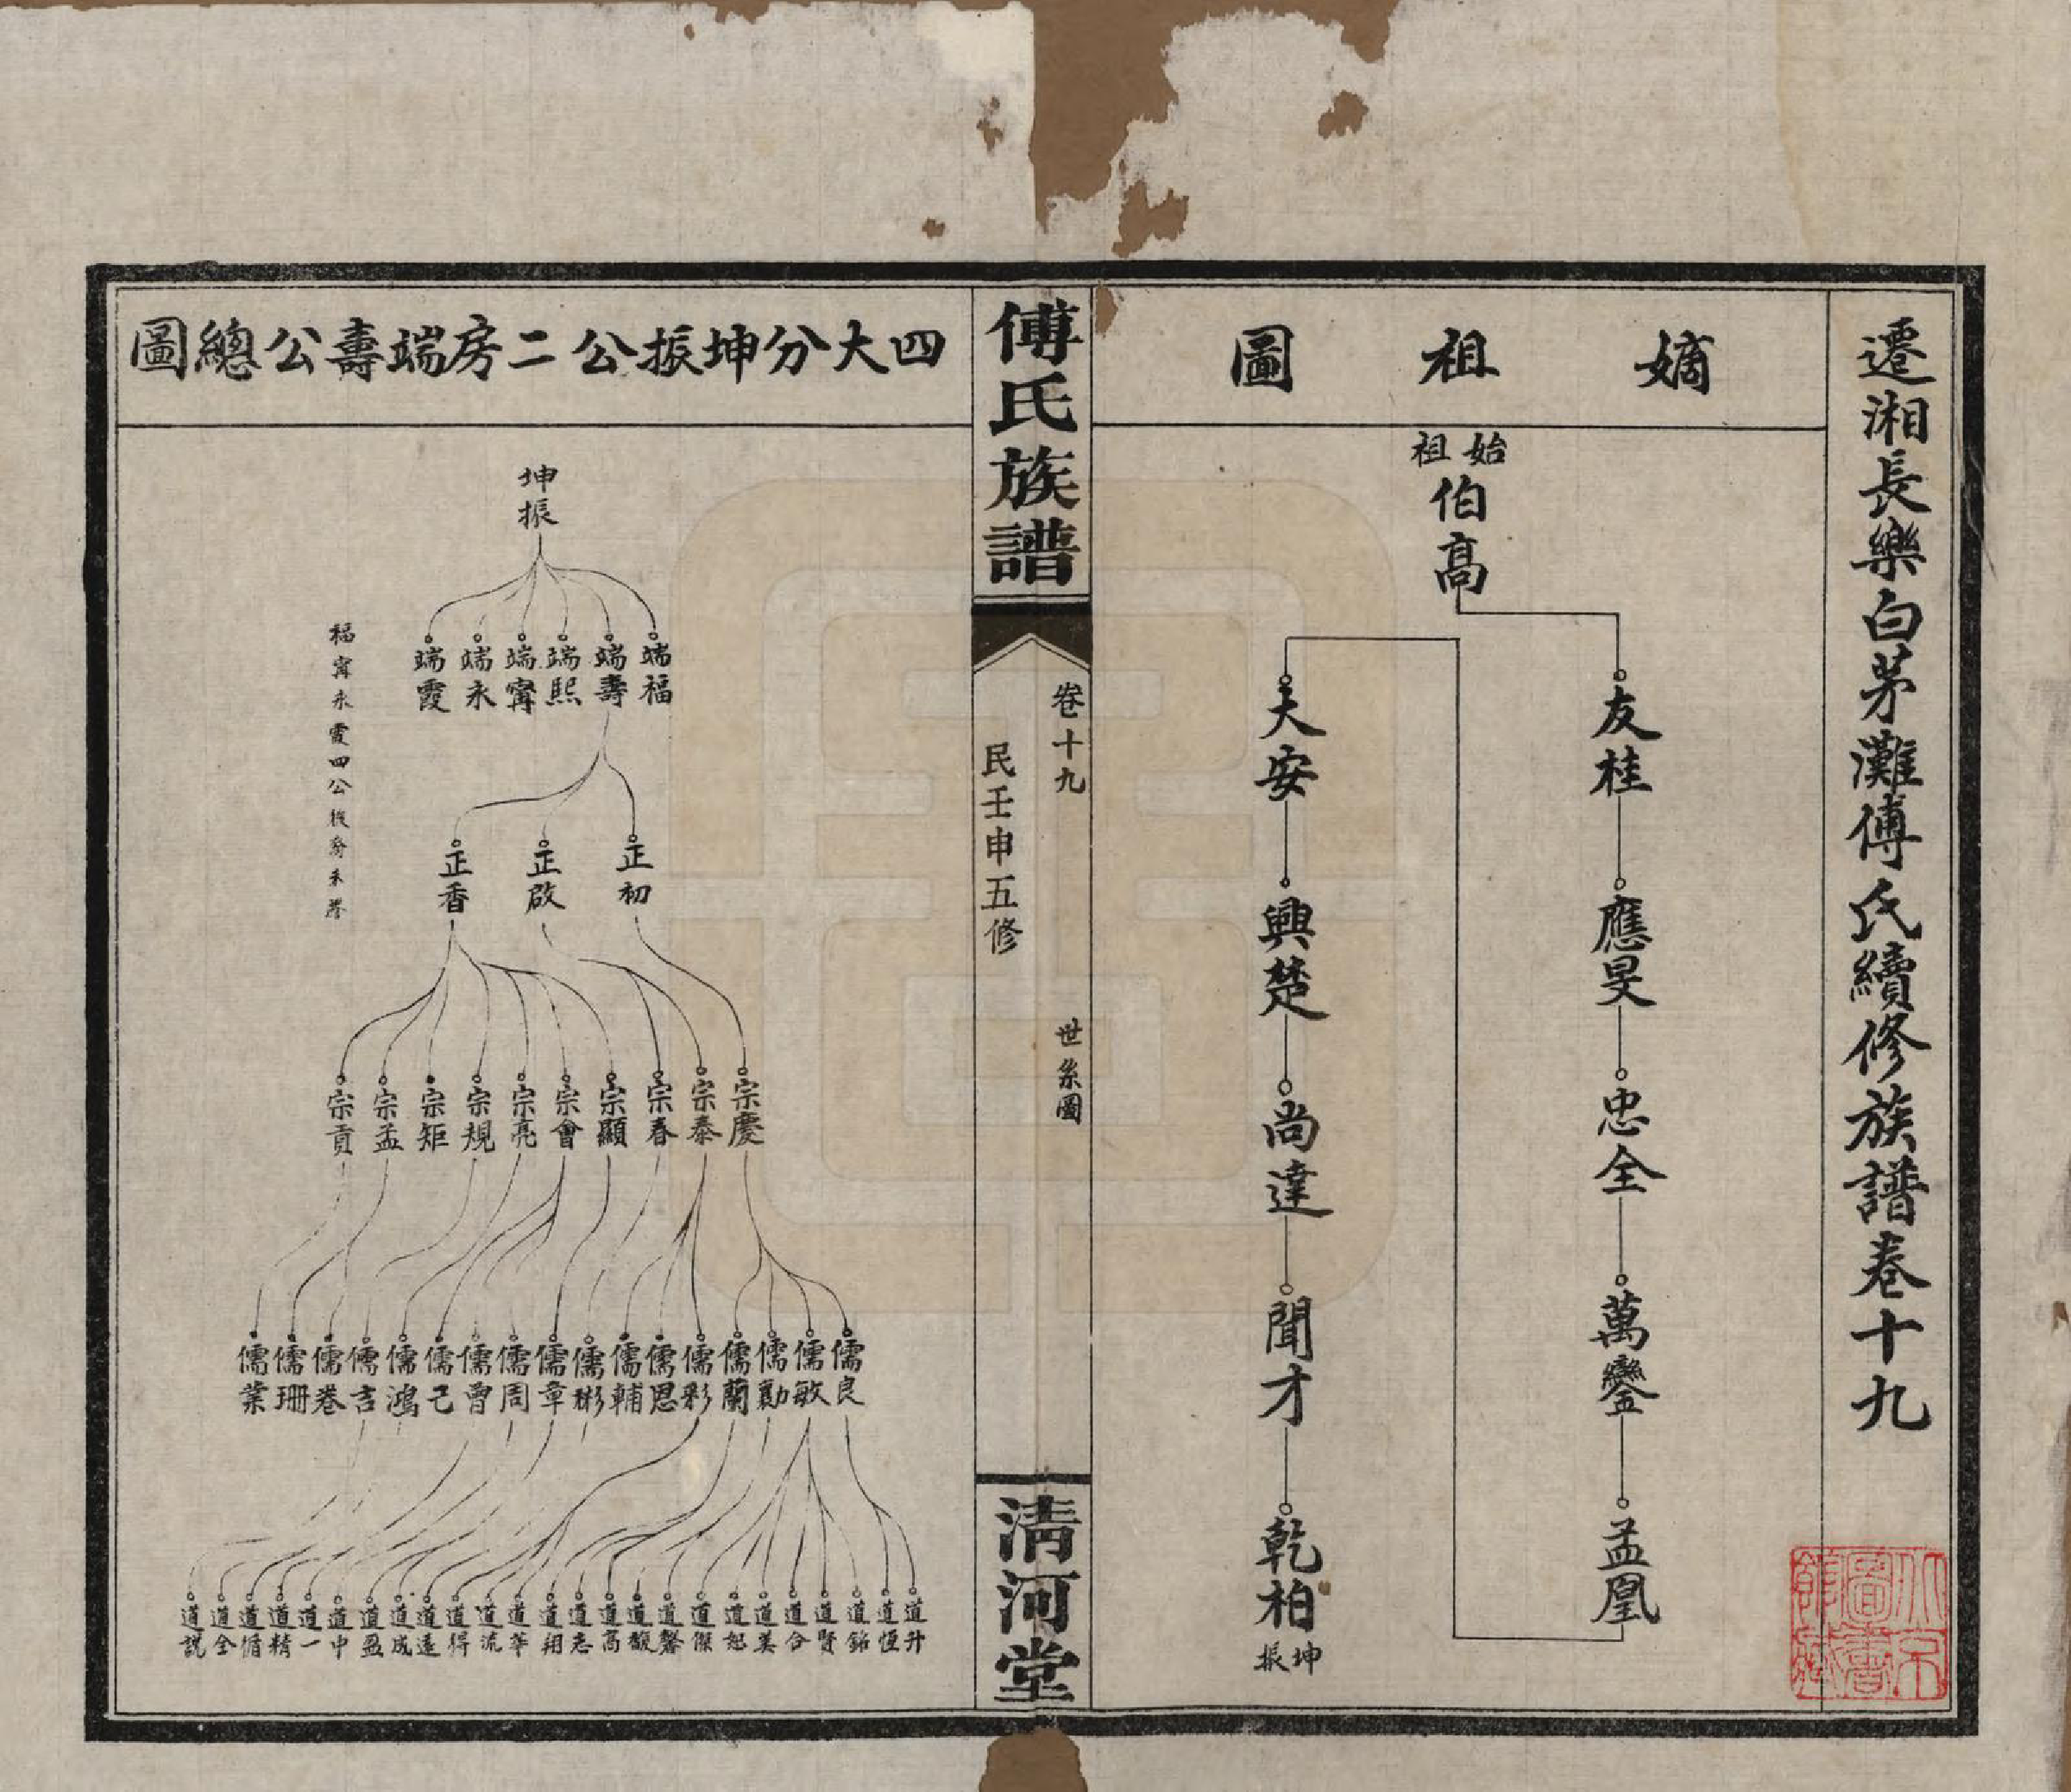 遷湘長樂白茅灘傅氏續修族譜卷十九
嫡祖圖
始祖
伯高
友桂
應旻
忠全
萬鑾
孟凰
天安
興楚
尚達
聞才
乾柏
坤振
傅氏族譜
卷十九
世系圖
民壬申五修
清河堂
四大分坤振公二房端壽公總圖
坤振
端福
端壽
端熙
端甯
端永
端霞
福甯永霞四公後裔未詳
正初
正啟
正香
宗慶
宗泰
宗春
宗顯
宗會
宗亮
宗規
宗矩
宗孟
宗貢
儒良
儒敏
儒勷
儒蘭
儒彩
儒思
儒輔
儒彬
儒章
儒周
儒曾
儒己
儒鴻
儒吉
儒巻
儒珊
儒業
道升
道恆
道銘
道賢
道合
道美
道恕
道傑
道馨
道馥
道高
道志
道翔
道華
道流
道得
道遠
道成
道盈
道中
道一
道精
道循
道全
道説
北京圖書館藏